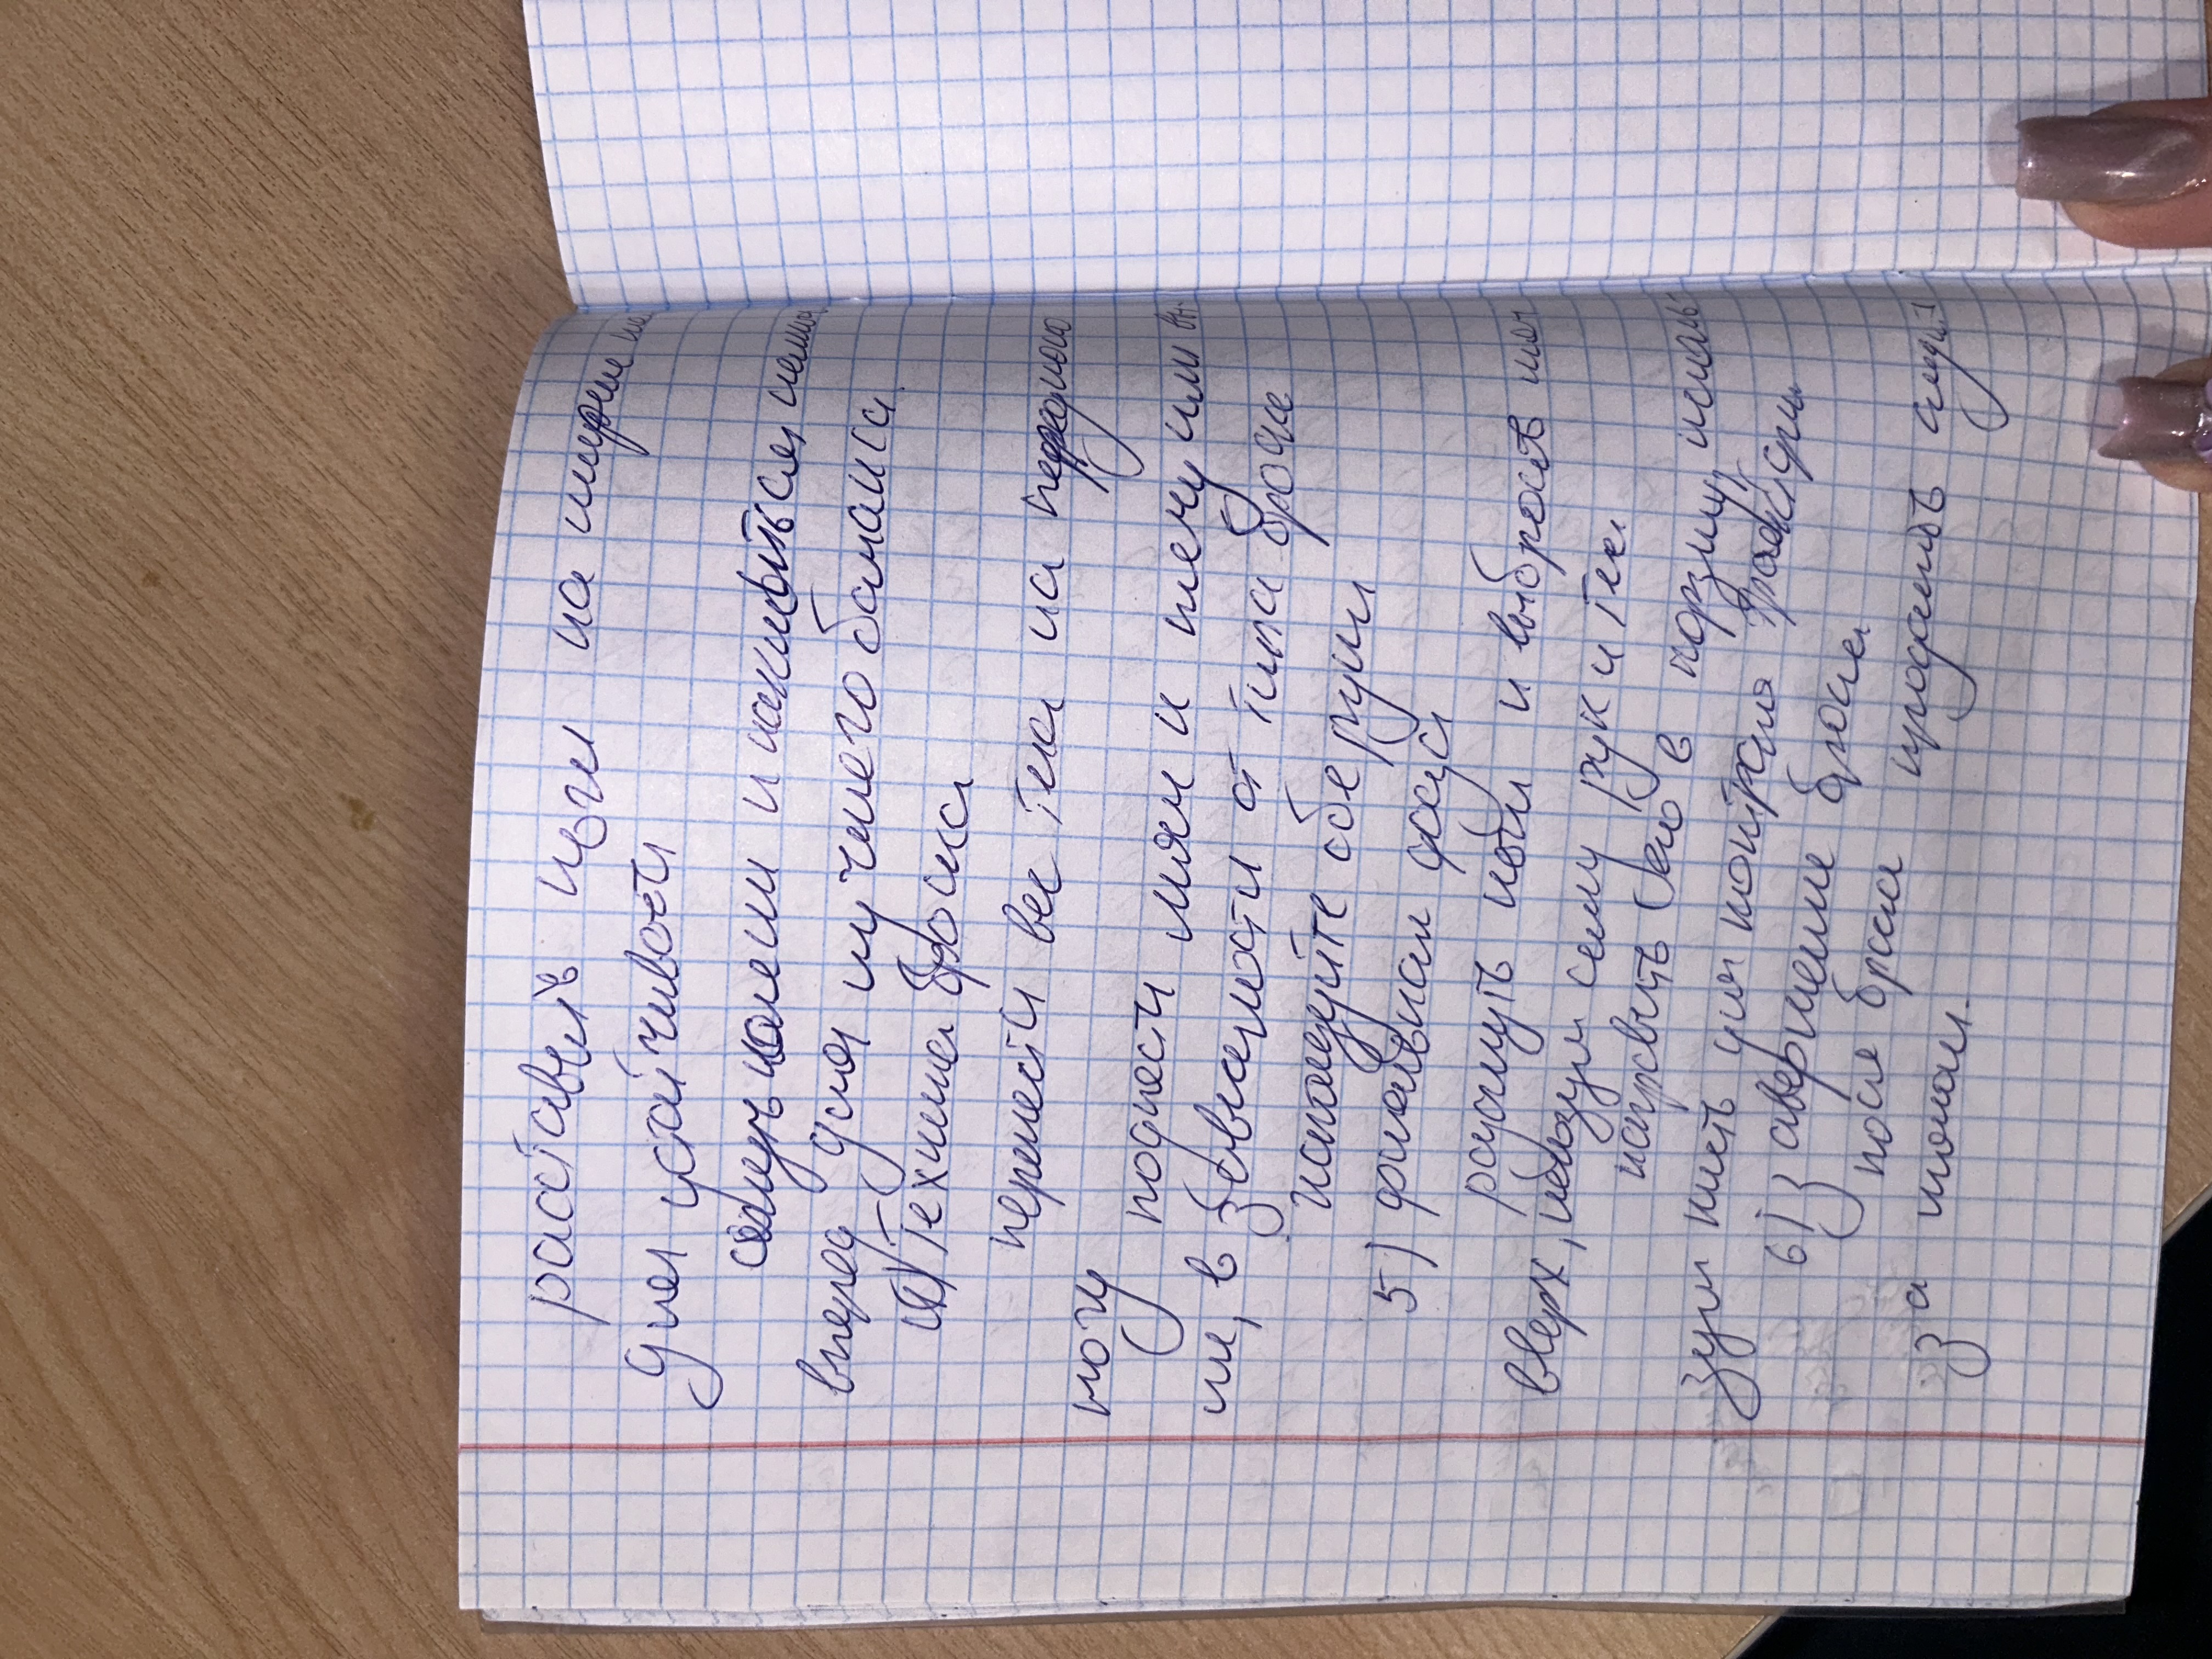 расставить ноги на ширине
для устойчивости
согнуть колени и наклониться немног
вперед для лучшего баланса.
4) Техника броска
перенести вес тела на переднюю
ногу
поднести мяч к плечу или вы
ше, в зависимости от типа броска
используйте обе руки
5) финальная фаза
разогнуть ноги и выбросить мяч
вверх, используя силу рук и тела.
направить его в корзину,
кисть для контроля траектории
6) Завершение броска
после броска продолжить
за мячом.